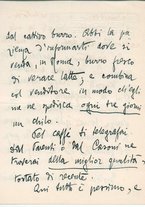 dal cattivo burro. Abbi la pa
zienza d'informarti dove si
venda, in Roma, burro fresco
di
latte, e combina
col venditore in modo ch'egli
me ne spedisca ogni tre giorni
un chilo.
Pel caffè ti telegrafai
dal
o dal Caroni me
troverai della miglior qualità,
tostato di recente.
Qui tutto è pessimo, e